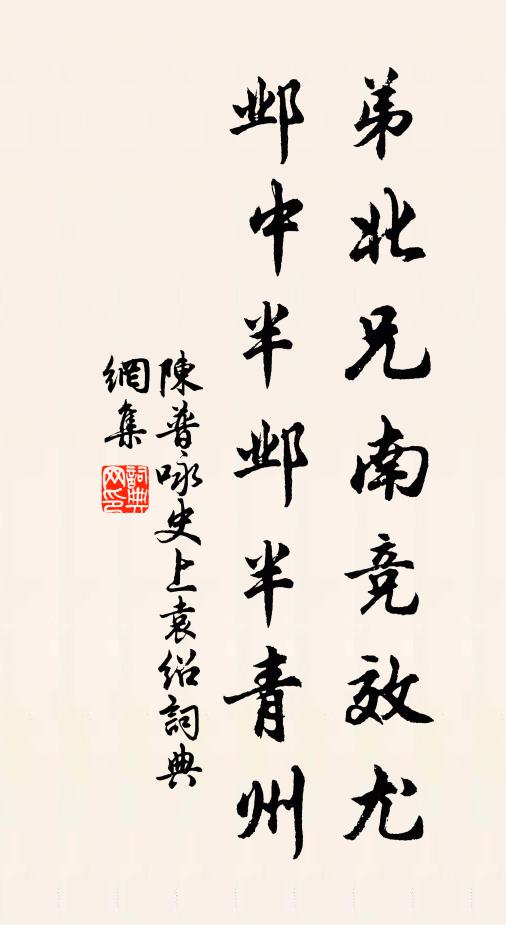 弟北兄南竞效尤
邺中半邺半青州
陳普咏史上袁绍詞典
網集
詞典网印